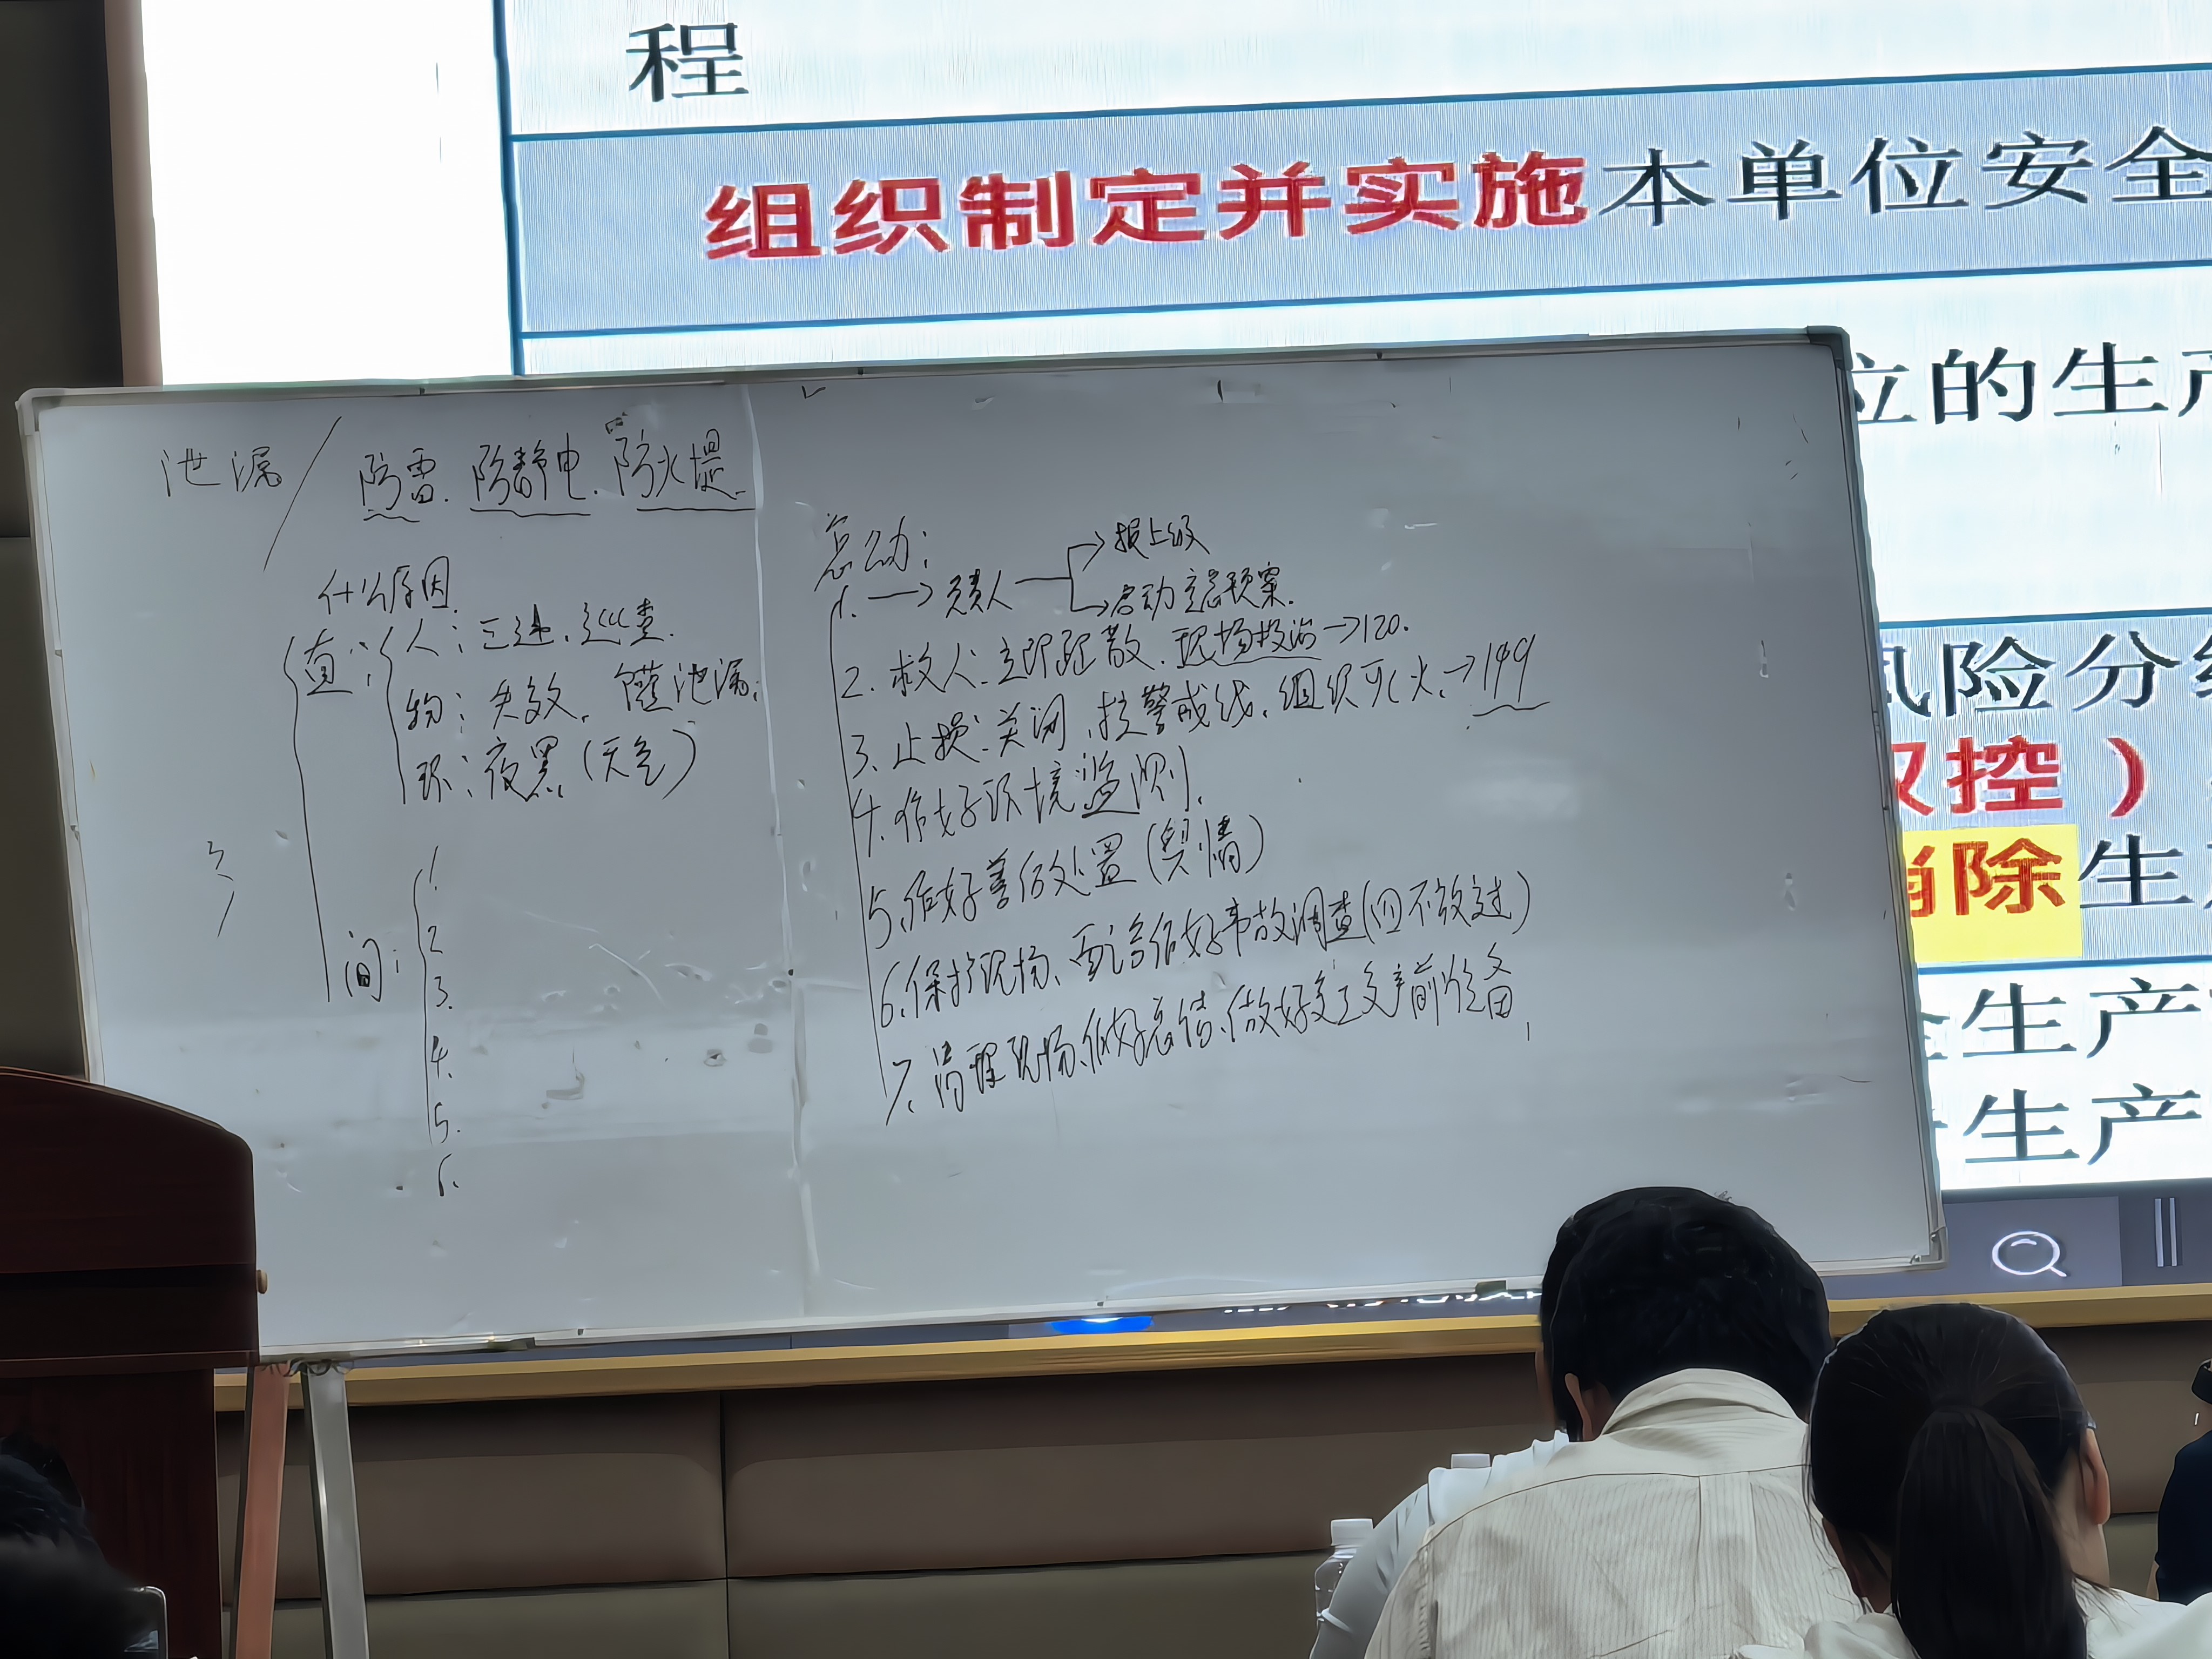 程
组织制定并实施本单位安全
位的生产
风险分级
双控）
消除生产
生产
生产
泄漏/ 防雷、防静电、防火堤
什么原因
直:
人:三违、巡查.
物:失效、罐泄漏;
环:夜黑(天色)
间:
1.
2
3.
4.
5.
6.
应急:
1. →负责人→报上级
→启动应急预案.
2.救人:立即疏散、现场救治→120.
3.止损:关阀、拉警戒线、组织灭火、→119
4.作好环境监测.
5.作好善后处置(舆情)
6.保护现场、配合作好事故调查(四不放过)
7.清理现场、作好总结、做好复工复产前准备